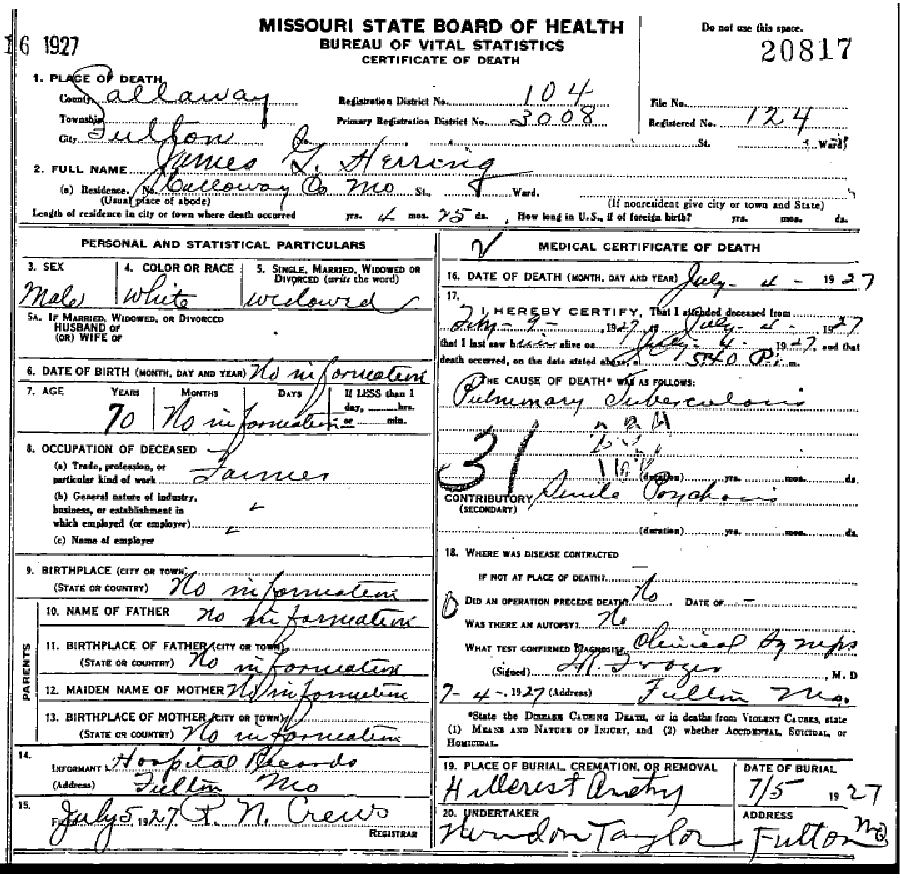 MISSOURI STATE BOARD OF HEALTH
BUREAU OF VITAL STATISTICS
CERTIFICATE OF DEATH
Do not use this space.
20817
16 1927
1. PLACE OF DEATH
County Callaway
Registration District No. 104
File No.
Township
Primary Registration District No. 3008
Registered No. 124
City Fulton
No.
St.
Ward
2. FULL NAME James T. Herring
(a) Residence. No. Calloway Co Mo St., Ward.
(Usual place of abode)
(If nonresident give city or town and State)
Length of residence in city or town where death occurred yrs. 4 mos. 25 ds. How long in U.S., if of foreign birth? yrs. mos. ds.
PERSONAL AND STATISTICAL PARTICULARS
3. SEX
Male
4. COLOR OR RACE
White
5. SINGLE, MARRIED, WIDOWED OR
DIVORCED (write the word)
widowed
5A. IF MARRIED, WIDOWED, OR DIVORCED
HUSBAND OF
(OR) WIFE OF
6. DATE OF BIRTH (MONTH, DAY AND YEAR) No information
7. AGE YEARS MONTHS DAYS If LESS than 1
day, hrs.
or min.
70 No information
8. OCCUPATION OF DECEASED
(a) Trade, profession, or
particular kind of work Farmer
(b) General nature of industry,
business, or establishment in
which employed (or employer)
(c) Name of employer
9. BIRTHPLACE (CITY OR TOWN)
(STATE OR COUNTRY) No information
PARENTS
10. NAME OF FATHER No information
11. BIRTHPLACE OF FATHER (CITY OR TOWN)
(STATE OR COUNTRY) No information
12. MAIDEN NAME OF MOTHER No information
13. BIRTHPLACE OF MOTHER (CITY OR TOWN)
(STATE OR COUNTRY) No information
14.
INFORMANT Hospital Records
(Address) Fulton Mo
15.
July 5 1927 R. N. Crews
REGISTRAR
MEDICAL CERTIFICATE OF DEATH
16. DATE OF DEATH (MONTH, DAY AND YEAR) July - 4 - 1927
17.
I HEREBY CERTIFY, That I attended deceased from
Feby - 9 - , 1927, to July - 4 - 1927
that I last saw him alive on July - 4 - 1927, and that
death occurred, on the date stated above, at 5:40 P. m.
THE CAUSE OF DEATH* WAS AS FOLLOWS:
Pulmonary Tuberculosis
31
(duration) yrs. mos. ds.
CONTRIBUTORY Senile Psychosis
(SECONDARY)
(duration) yrs. mos. ds.
18. WHERE WAS DISEASE CONTRACTED
IF NOT AT PLACE OF DEATH? —
DID AN OPERATION PRECEDE DEATH? No DATE OF —
WAS THERE AN AUTOPSY? No
WHAT TEST CONFIRMED DIAGNOSIS? Clinical Symps
(Signed) , M. D
7 - 4 -, 1927 (Address) Fulton Mo.
*State the DISEASE CAUSING DEATH, or in deaths from VIOLENT CAUSES, state
(1) MEANS AND NATURE OF INJURY, and (2) whether ACCIDENTAL, SUICIDAL, or
HOMICIDAL.
19. PLACE OF BURIAL, CREMATION, OR REMOVAL
Hillcrest
DATE OF BURIAL
7/5 1927
20. UNDERTAKER
Herndon Taylor
ADDRESS
Fulton Mo